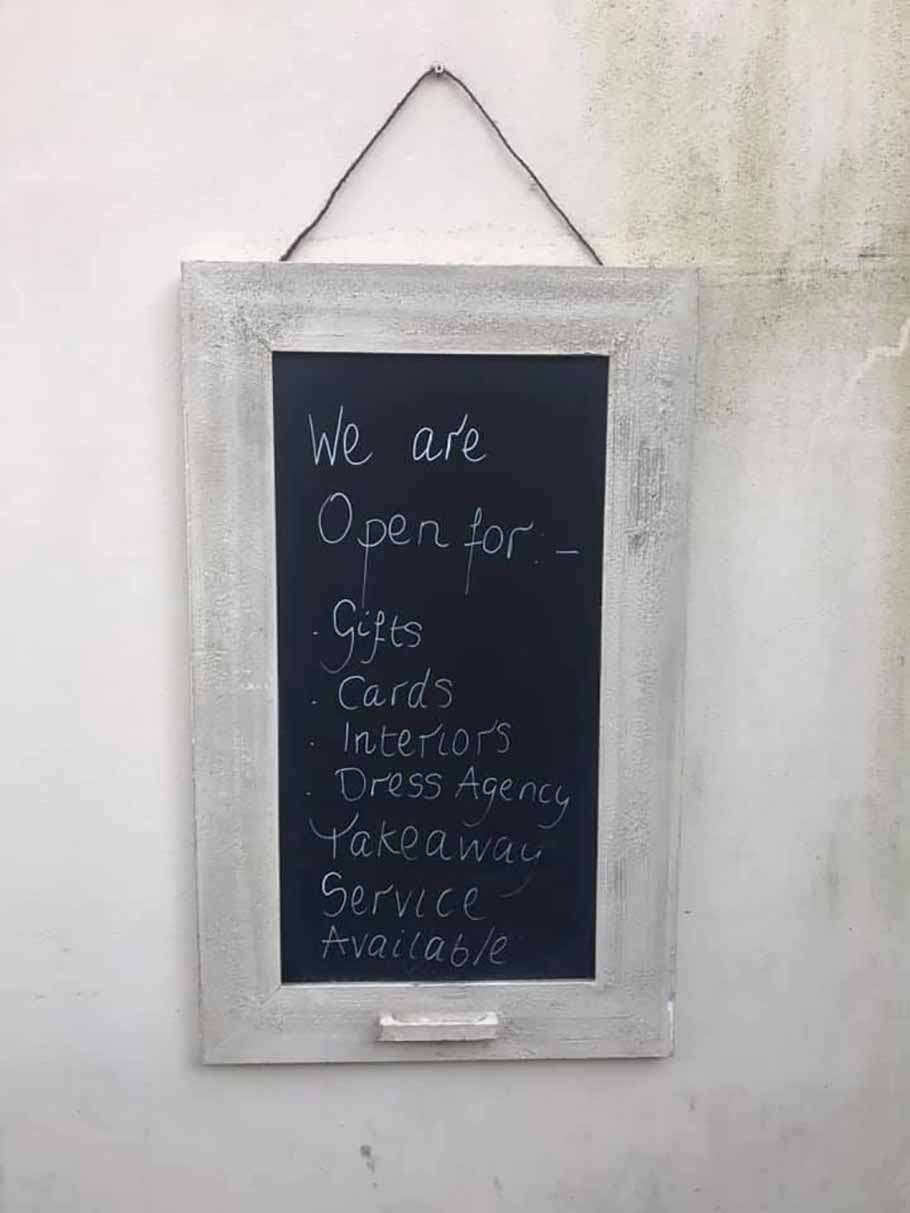 We are
Open for:-
. Gifts
. Cards
. Interiors
. Dress Agency
Takeaway
Service
Available